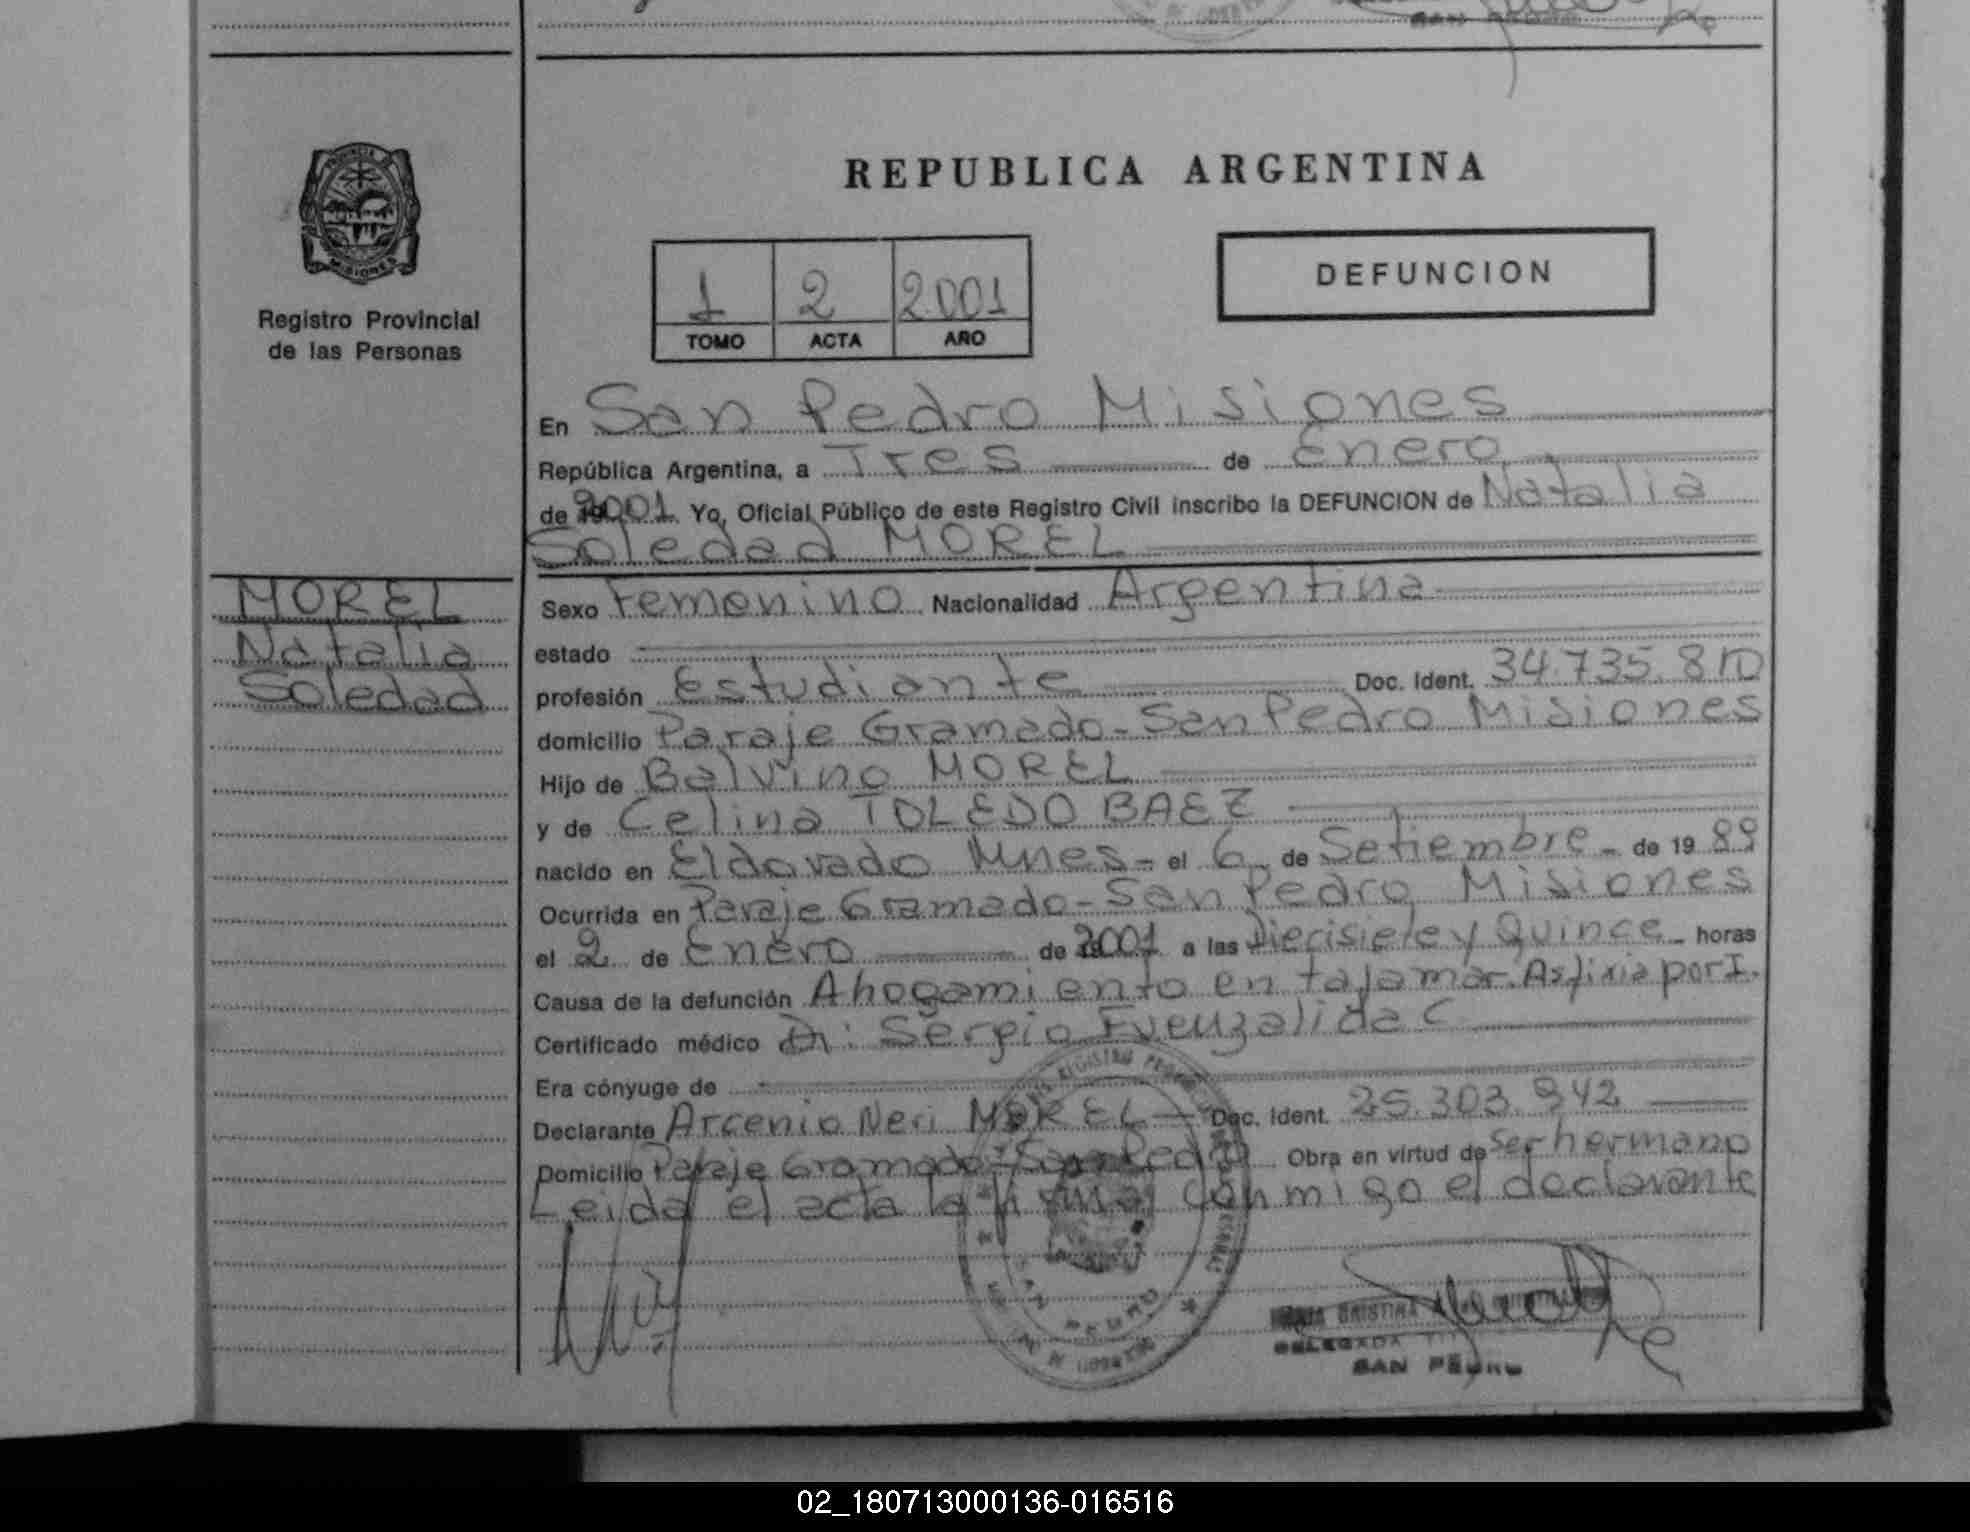 PROVINCIA DE
MISIONES
Registro Provincial
de las Personas
MOREL
Natalia
Soledad
REPUBLICA ARGENTINA
1 2 2.001
TOMO ACTA AÑO
DEFUNCION
En San Pedro Misiones
República Argentina, a Tres de Enero
de 2001 Yo, Oficial Público de este Registro Civil inscribo la DEFUNCION de Natalia
Soledad MOREL
Sexo Femenino Nacionalidad Argentina
estado
profesión Estudiante Doc. Ident. 34.735.810
domicilio Paraje Gramado - San Pedro Misiones
Hijo de Balvino MOREL
y de Celina TOLEDO BAEZ
nacido en Eldorado Mnes - el 6 de Setiembre - de 19 89
Ocurrida en Paraje Gramado - San Pedro Misiones
el 2 de Enero de 2001 a las Diecisiete y Quince - horas
Causa de la defunción Ahogamiento en tajamar. Asfixia por I.
Certificado médico Dr: Sergio Fuenzalida C
Era cónyuge de
Declarante Arcenio Neri MOREL - Doc. Ident. 25.303.942
Domicilio Paraje Gramado - San Pedro Obra en virtud de ser hermano
Leida el acta la firma conmigo el declarante
CRISTINA
DELEGADA
SAN PEDRO
02_180713000136-016516